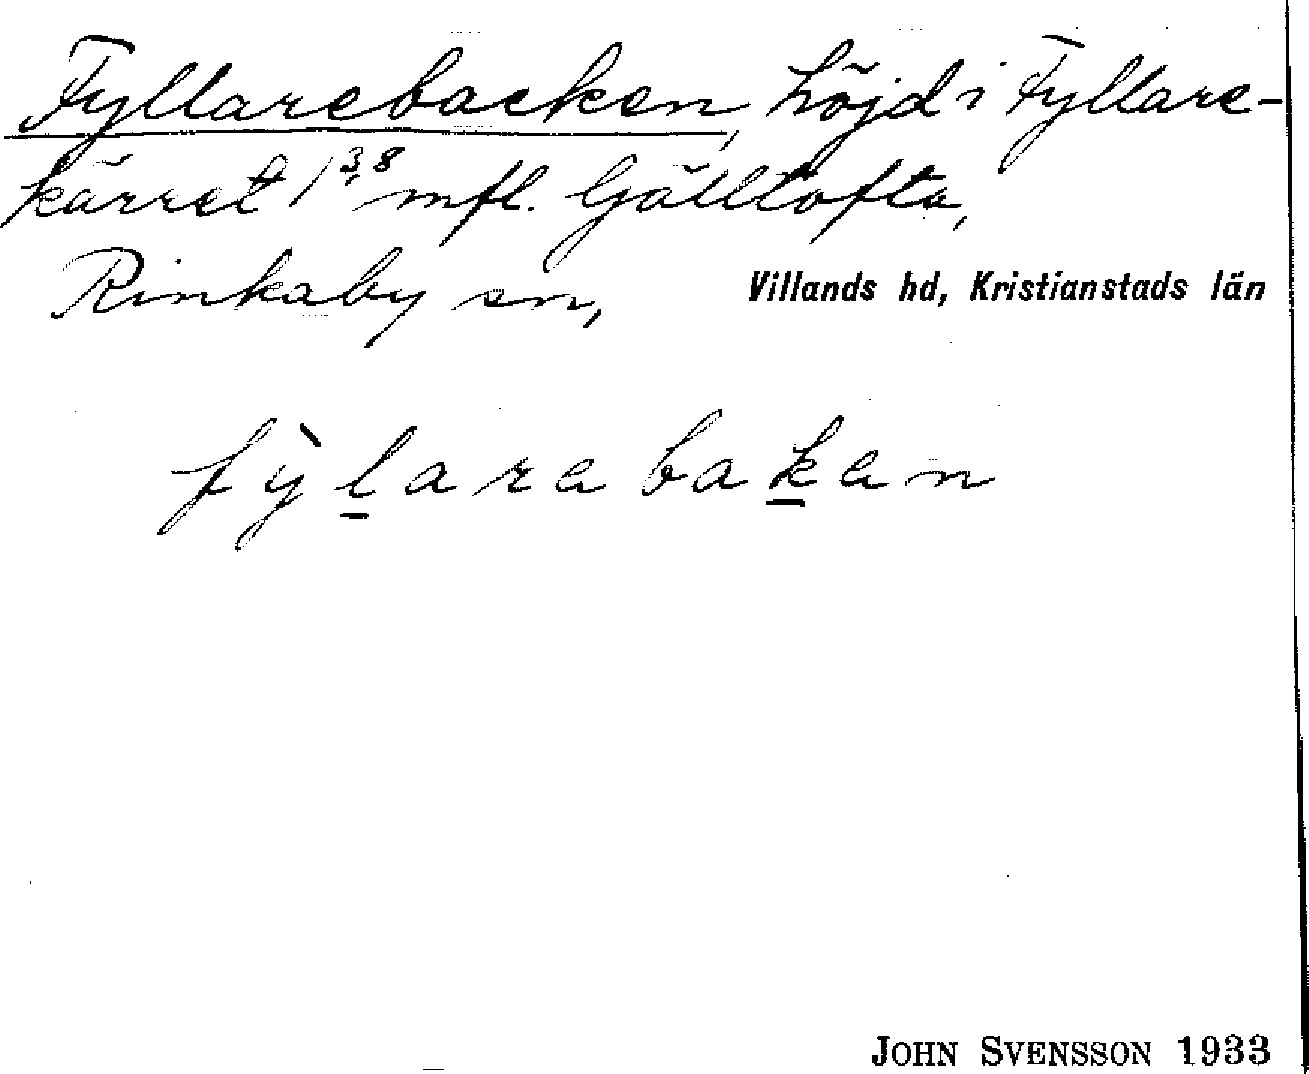 Fyllarebacken, höjd i Fyllare-
kärret 1 3,8 mfl. Gälltofta,
Rinkaby sn, Villands hd, Kristianstads län
fỳlarabakan
JOHN SVENSSON 1933